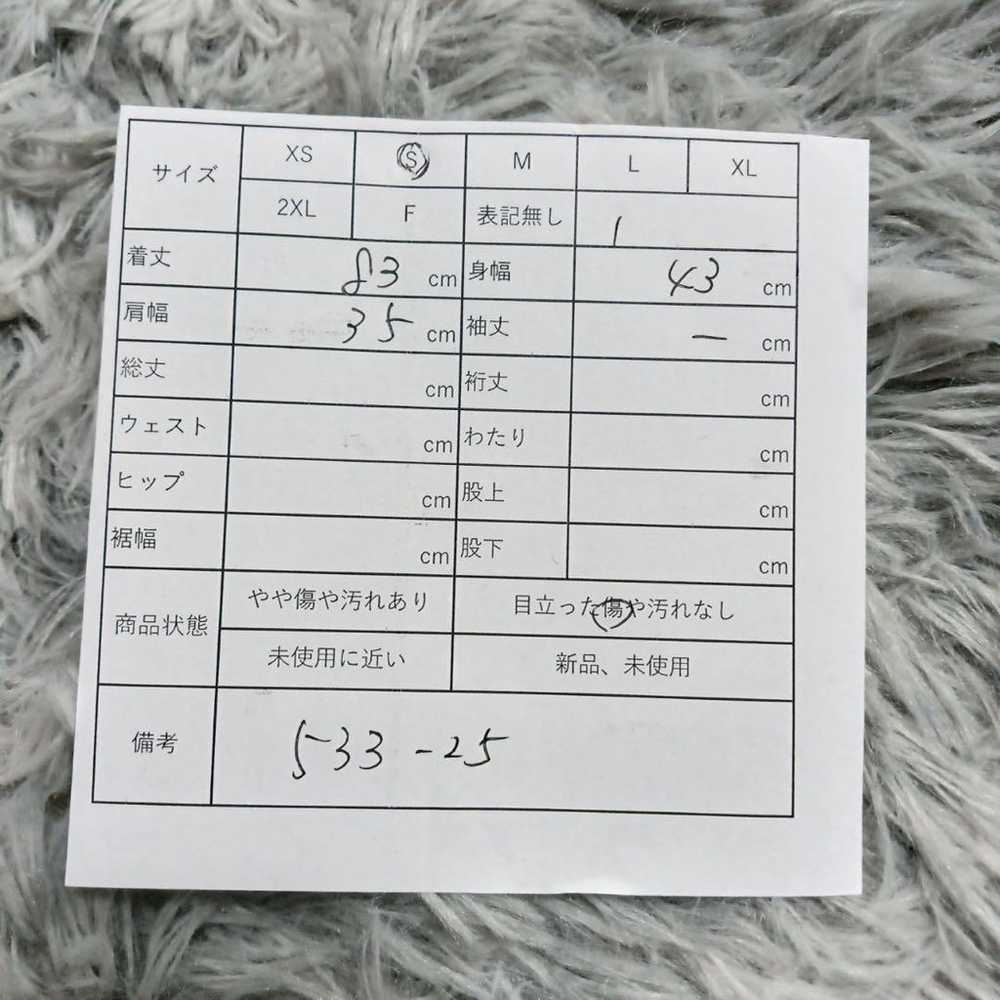 サイズ XS S M L XL
2XL F 表記無し 1
着丈 83 cm 身幅 43 cm
肩幅 35 cm 袖丈 ー cm
総丈 cm 裄丈 cm
ウェスト cm わたり cm
ヒップ cm 股上 cm
裾幅 cm 股下 cm
商品状態 やや傷や汚れあり 目立った傷や汚れなし
未使用に近い 新品、未使用
備考 533-25